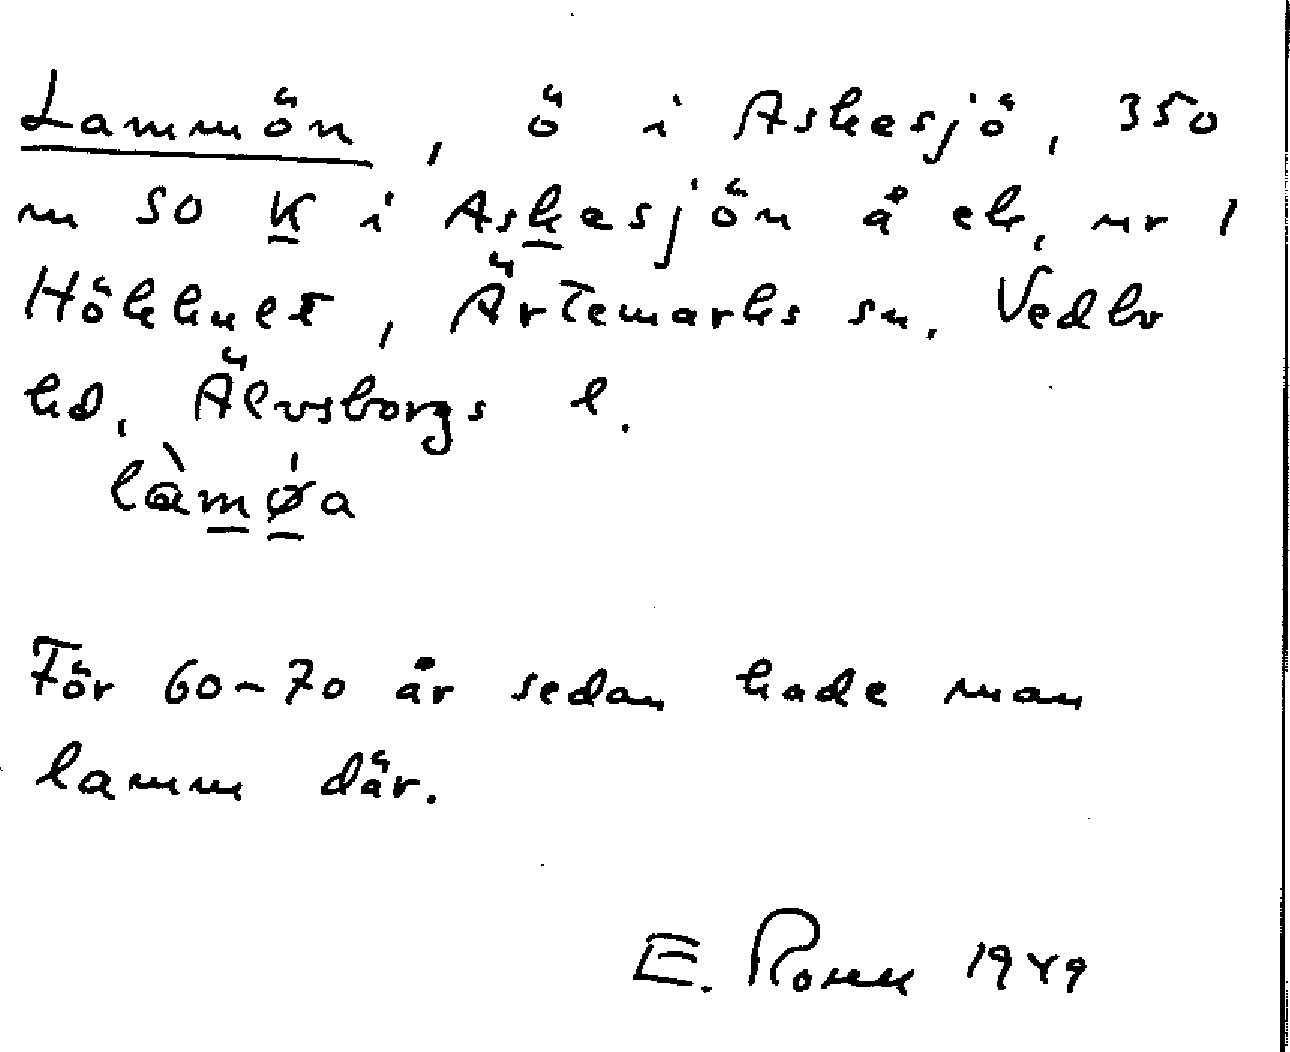 Lammön, ö i Askesjö, 350
m SO K i Askesjön å ek, nr 1
Hökhult, Ärtemarks sn. Vedbo
hd, Älvsborgs l.
làmøa
För 60-70 år sedan hade man
lamm där.
E. 1949